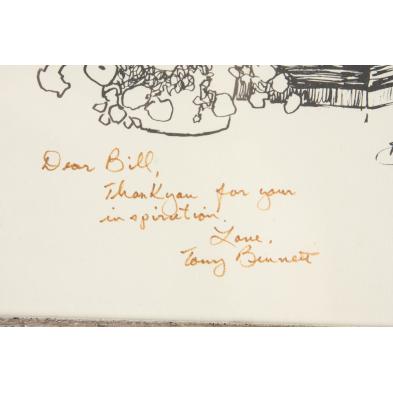 Dear Bill,
Thank you for your
inspiration.
Love,
Tony Bennett